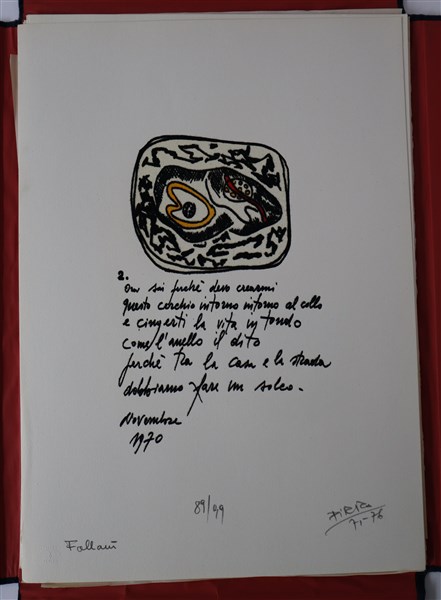 2.
Ora sai perchè devo crearmi
questo cerchio intorno intorno al collo
e cingerti la vita in tondo
come l'anello il dito
perchè tra la casa e la strada
dobbiamo fare un solco.
Novembre
1970
89/99
71-76